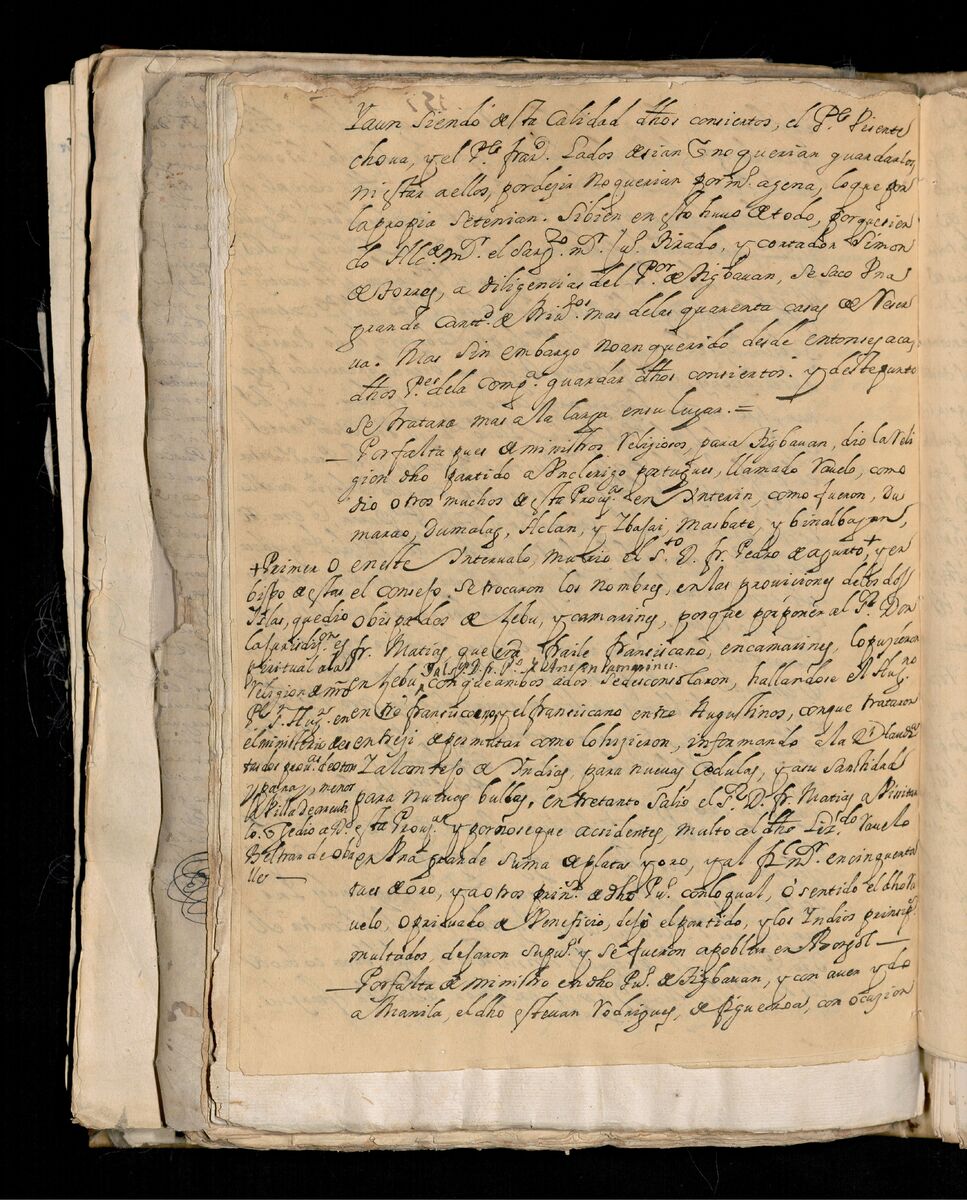 Y aun siendo de esta calidad dhos consiertos, el Pe. Visente
choua, y el Pe. fran.co Lados desian q̃ no querian guardarlos,
ni estar a ellos, por dezir no querian por m.o agena, lo que por
la propia se tenian. Si bien en esto huuo de todo, porque sien
do Alc.de m.r el Sarg.to m.r Ju.o Pirado, y contador Simon
de torres, a diligencias del P.or de Tigbauan, se saco Vna
grande cant.d de Trid.os mas de las quarenta casas de Reser
ua. Mas sin embargo no an querido desde entonses aca,
dhos P.es de la Comp.a guardar dhos consiertos. y deste punto
se tratara mas a la larga en su lugar. =
— Por falta pues de ministros Religiosos, para Tigbauan, dio la Reli
gion dho partido a Vn clerigo portugues, llamado Rauelo, como
dio otros muchos de esta Prou.a en interin, como fueron, Du
marao, Dumalag, Aclan, y Ybajai, Masbate, y binalbagan,
o en este Intervalo, murio el S.to D. fr. Pedro de agurto, + y en
el consejo se trocaron los nombres, en las prouiciones de los dos
obispados de Zebu, y camarines, porque por poner al P.e Don
fr. Mathias que era fraile Fransiscano, en camarines, lo pusieron
en Zebu, y al P.e D. fr. P.o de Arse en camarines.
con que ambos a dos se desconsolaron, hallandose el Aug.no
entre fransiscanos, y el fransiscano entre Augustinos, con que trataron
entre si, de permutar como lo hizieron, informando a la R.l Laud.a
Y al consejo de Yndias, para nuevas Cedulas, y a su santidad
para nuevas bullas. entretanto salio el P.e D. fr. Matias a Visitar
esta Prou.a y por no se que accidentes, multo al dho Liz.do Rauelo
en Vna grande suma de plata, y oro, y al en cinquenta
taes de oro, y a otros prin.s de dho Pu.o con lo qual, o sentido el dho Ra
uelo, o priuado de Beneficio, dejo el partido, y los Indios prinsip.s
multados, dejaron su pu.o y se fueron a poblar en Borgol —
— Por falta de ministro en dho Pu.o de Tigbauan, y con auer ydo
a Manila, el dho esteuan Rodrigues, de figueroa, con ocazion
+ Primer o
bispo de estas
Islas, que dio
la jurisdis.on es
piritual a la
Religion de nro
P.e S. Aug.n en
el ministerio de es
tas dos prou.as de oton
y panay, menos
la Villa de areualo
lo. q̃ se dio a D.o
Beltran de obre
llo —